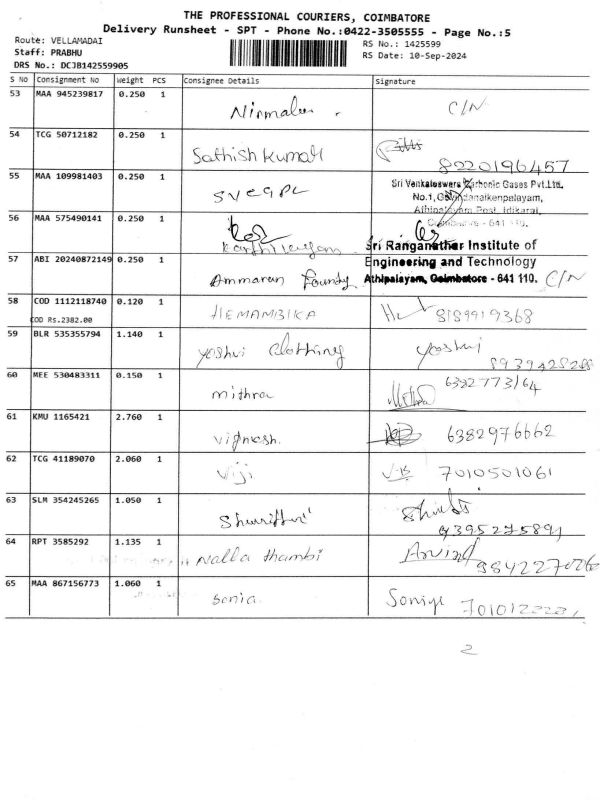 THE PROFESSIONAL COURIERS, COIMBATORE
Delivery Runsheet - SPT - Phone No.:0422-3505555 - Page No.:5
Route: VELLAMADAI
RS No.: 1425599
Staff: PRABHU
RS Date: 10-Sep-2024
DRS No.: DCJB142559905
S No Consignment No Weight PCS Consignee Details Signature
53 MAA 945239817 0.250 1 Nirmala C/N
54 TCG 50712182 0.250 1 Sathish Kumar 8220196457
55 MAA 109981403 0.250 1 SVCGPL Sri Venkateswara Carbonic Gases Pvt.Ltd.
No.1, Govindanaikenpalayam,
Athipalayam Post, Idikarai,
Coimbatore - 641 110.
56 MAA 575490141 0.250 1
Sri Ranganathar Institute of
57 ABI 20240872149 0.250 1 Engineering and Technology
Ammaran Foundry Athipalayam, Coimbatore - 641 110. C/N
58 COD 1112118740 0.120 1 HEMAMBIKA 8189919368
COD Rs.2382.00
59 BLR 535355794 1.140 1 yoshvi clothing yoshvi
8939428288
60 MEE 530483311 0.150 1 mithra 6382773164
61 KMU 1165421 2.760 1 vignesh. 6382976662
62 TCG 41189070 2.060 1 Viji 7010501061
63 SLM 354245265 1.050 1
9395275891
64 RPT 3585292 1.135 1 Nalla thambi Arvind
65 MAA 867156773 1.060 1 Sonia Soniya
2